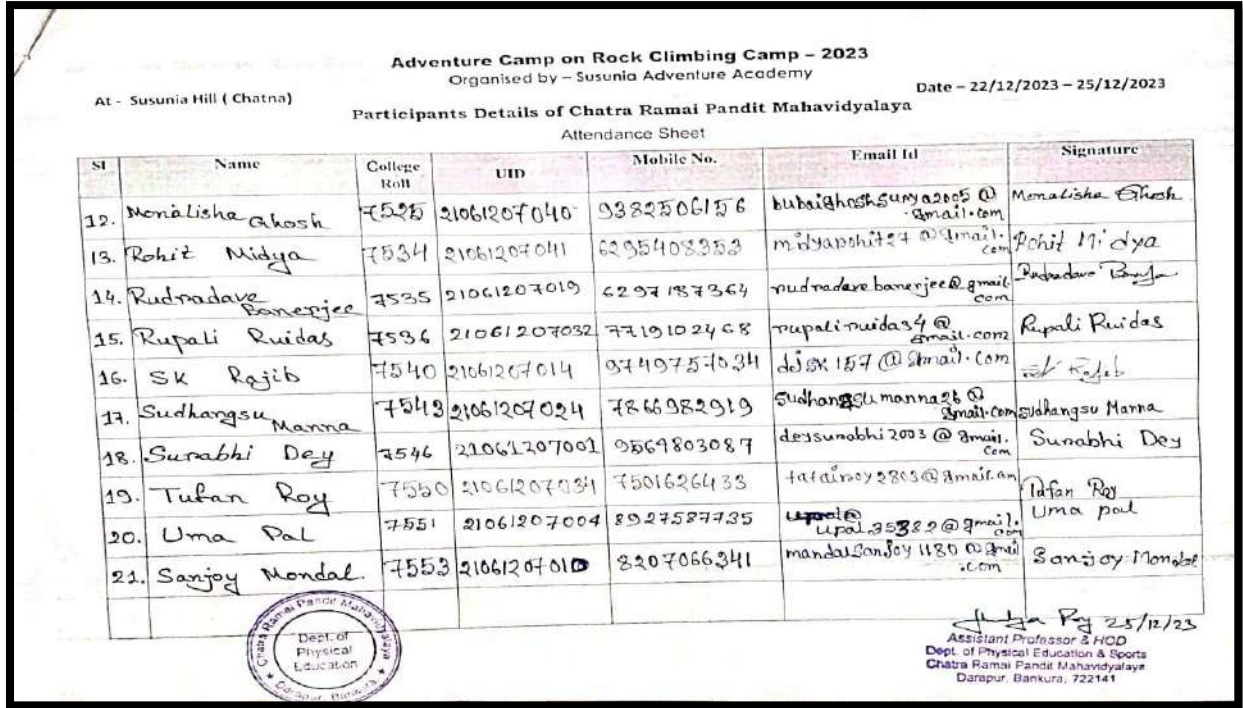 Adventure Camp on Rock Climbing Camp – 2023
Organised by – Susunia Adventure Academy
At - Susunia Hill ( Chatna)
Date – 22/12/2023 – 25/12/2023
Participants Details of Chatra Ramai Pandit Mahavidyalaya
Attendance Sheet
Sl Name College Roll UID Mobile No. Email Id Signature
12. Monalisha Ghosh 7525 21061207040 9382506156 bubaighoshsunya2005@gmail.com Monalisha Ghosh
13. Rohit Midya 7534 21061207041 6295408353 midyarohit27@gmail.com Rohit Midya
14. Rudradave Banerjee 7535 21061207019 6297187364 rudradavebanerjee@gmail.com Rudradave
15. Rupali Ruidas 7536 21061207032 7719102468 rupaliruidas4@gmail.com Rupali Ruidas
16. SK Rajib 7540 21061207014 9749757034 ddsk157@gmail.com
17. Sudhangsu Manna 7543 21061207024 7866982919 Sudhangsumanna26@gmail.com Sudhangsu Manna
18. Surabhi Dey 7546 21061207001 9564803087 deysurabhi2003@gmail.com Surabhi Dey
19. Tufan Roy 7550 21061207034 7501626433 tatairoy2803@gmail.com Tufan Roy
20. Uma Pal 7551 21061207004 8927587735 upal35382@gmail.com Uma pal
21. Sanjoy Mondal 7553 21061207010 8207066341 mandalsanjoy1180@gmail.com Sanjoy Mondal
Chatra Ramai Pandit Mahavidyalaya
Dept. of
Physical
Education
Darapur, Bankura
25/12/23
Assistant Professor & HOD
Dept. of Physical Education & Sports
Chatra Ramai Pandit Mahavidyalaya
Darapur, Bankura, 722141